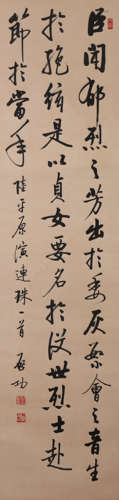 臣闻郁烈之芳出于委灰繁会之音生
于绝弦是以贞女要名于没世烈士赴
节于当年
陆平原演连珠一首 启功